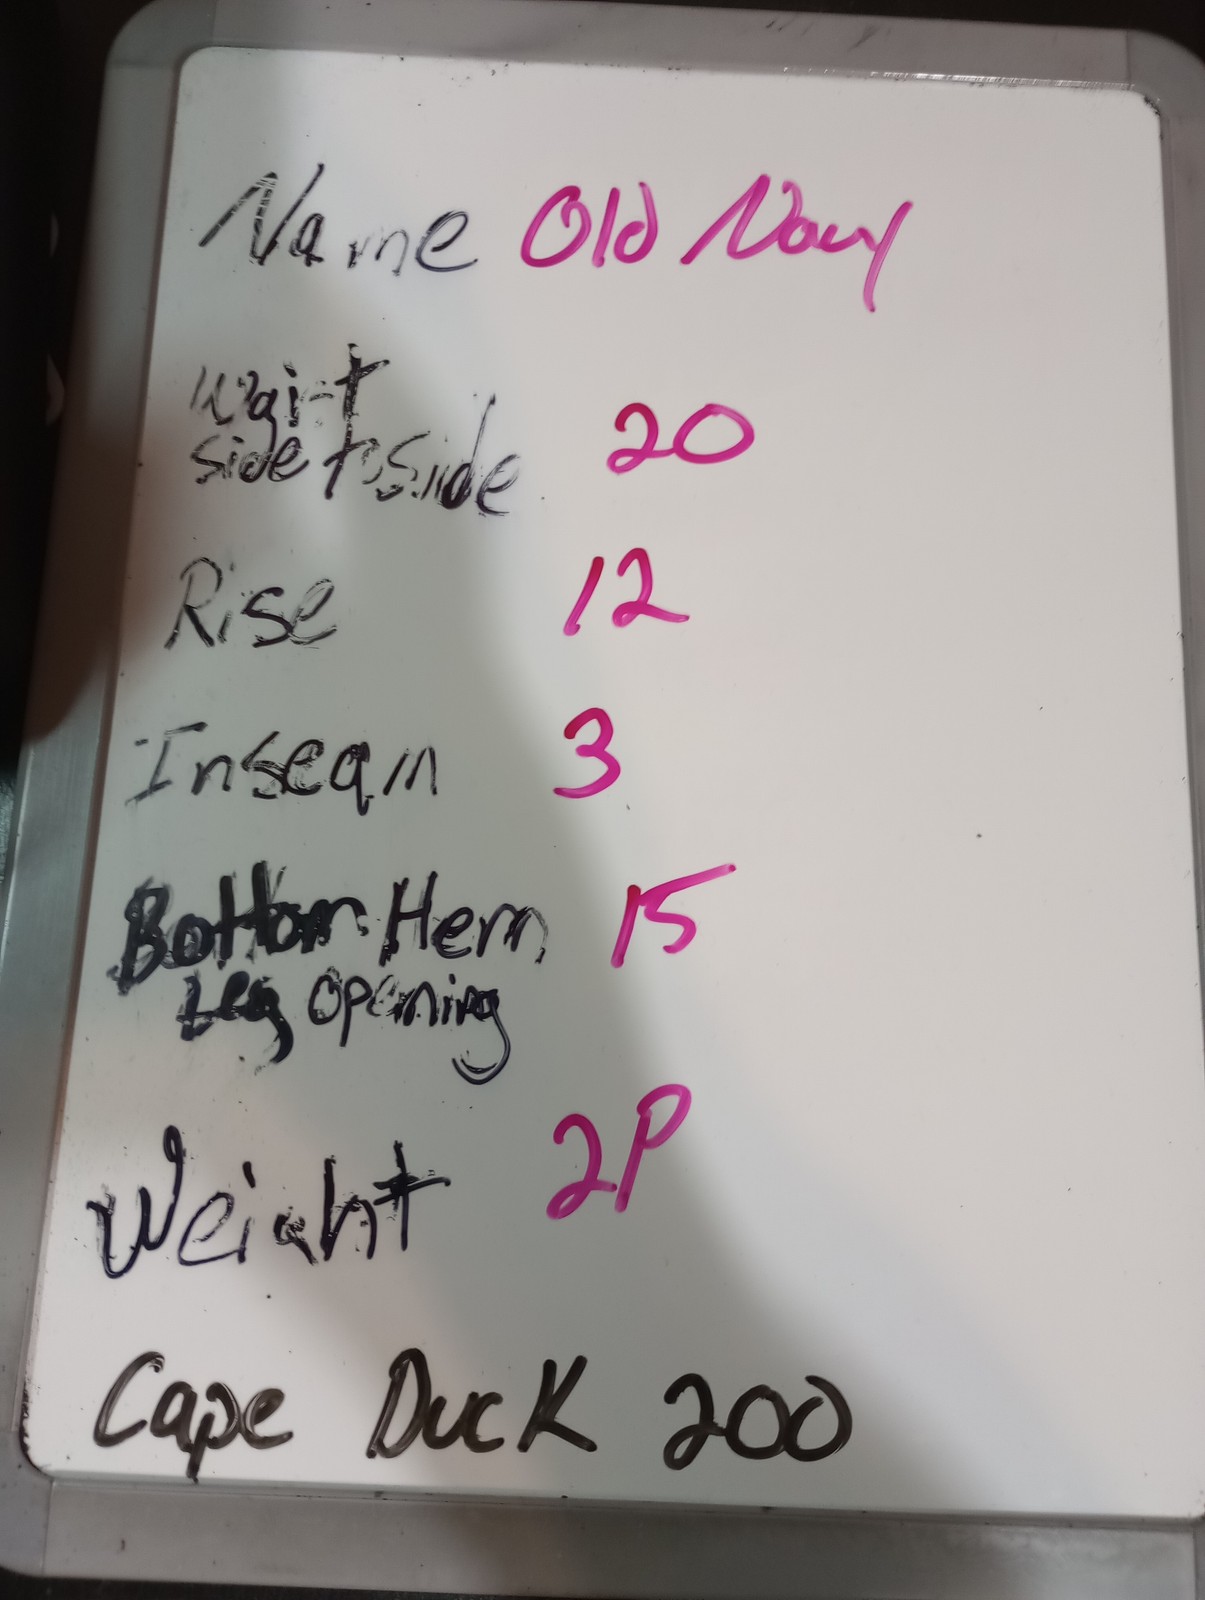 Name Old Navy
Waist
side to side 20
Rise 12
Inseam 3
Bottom Hem 15
Leg Opening
Weight 2P
Cape Duck 200